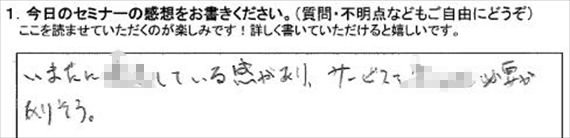 1. 今日のセミナーの感想をお書きください。(質問・不明点などもご自由にどうぞ)
ここを読ませていただくのが楽しみです!詳しく書いていただけると嬉しいです。
している感があり、サービスで 必要が
ありそう。